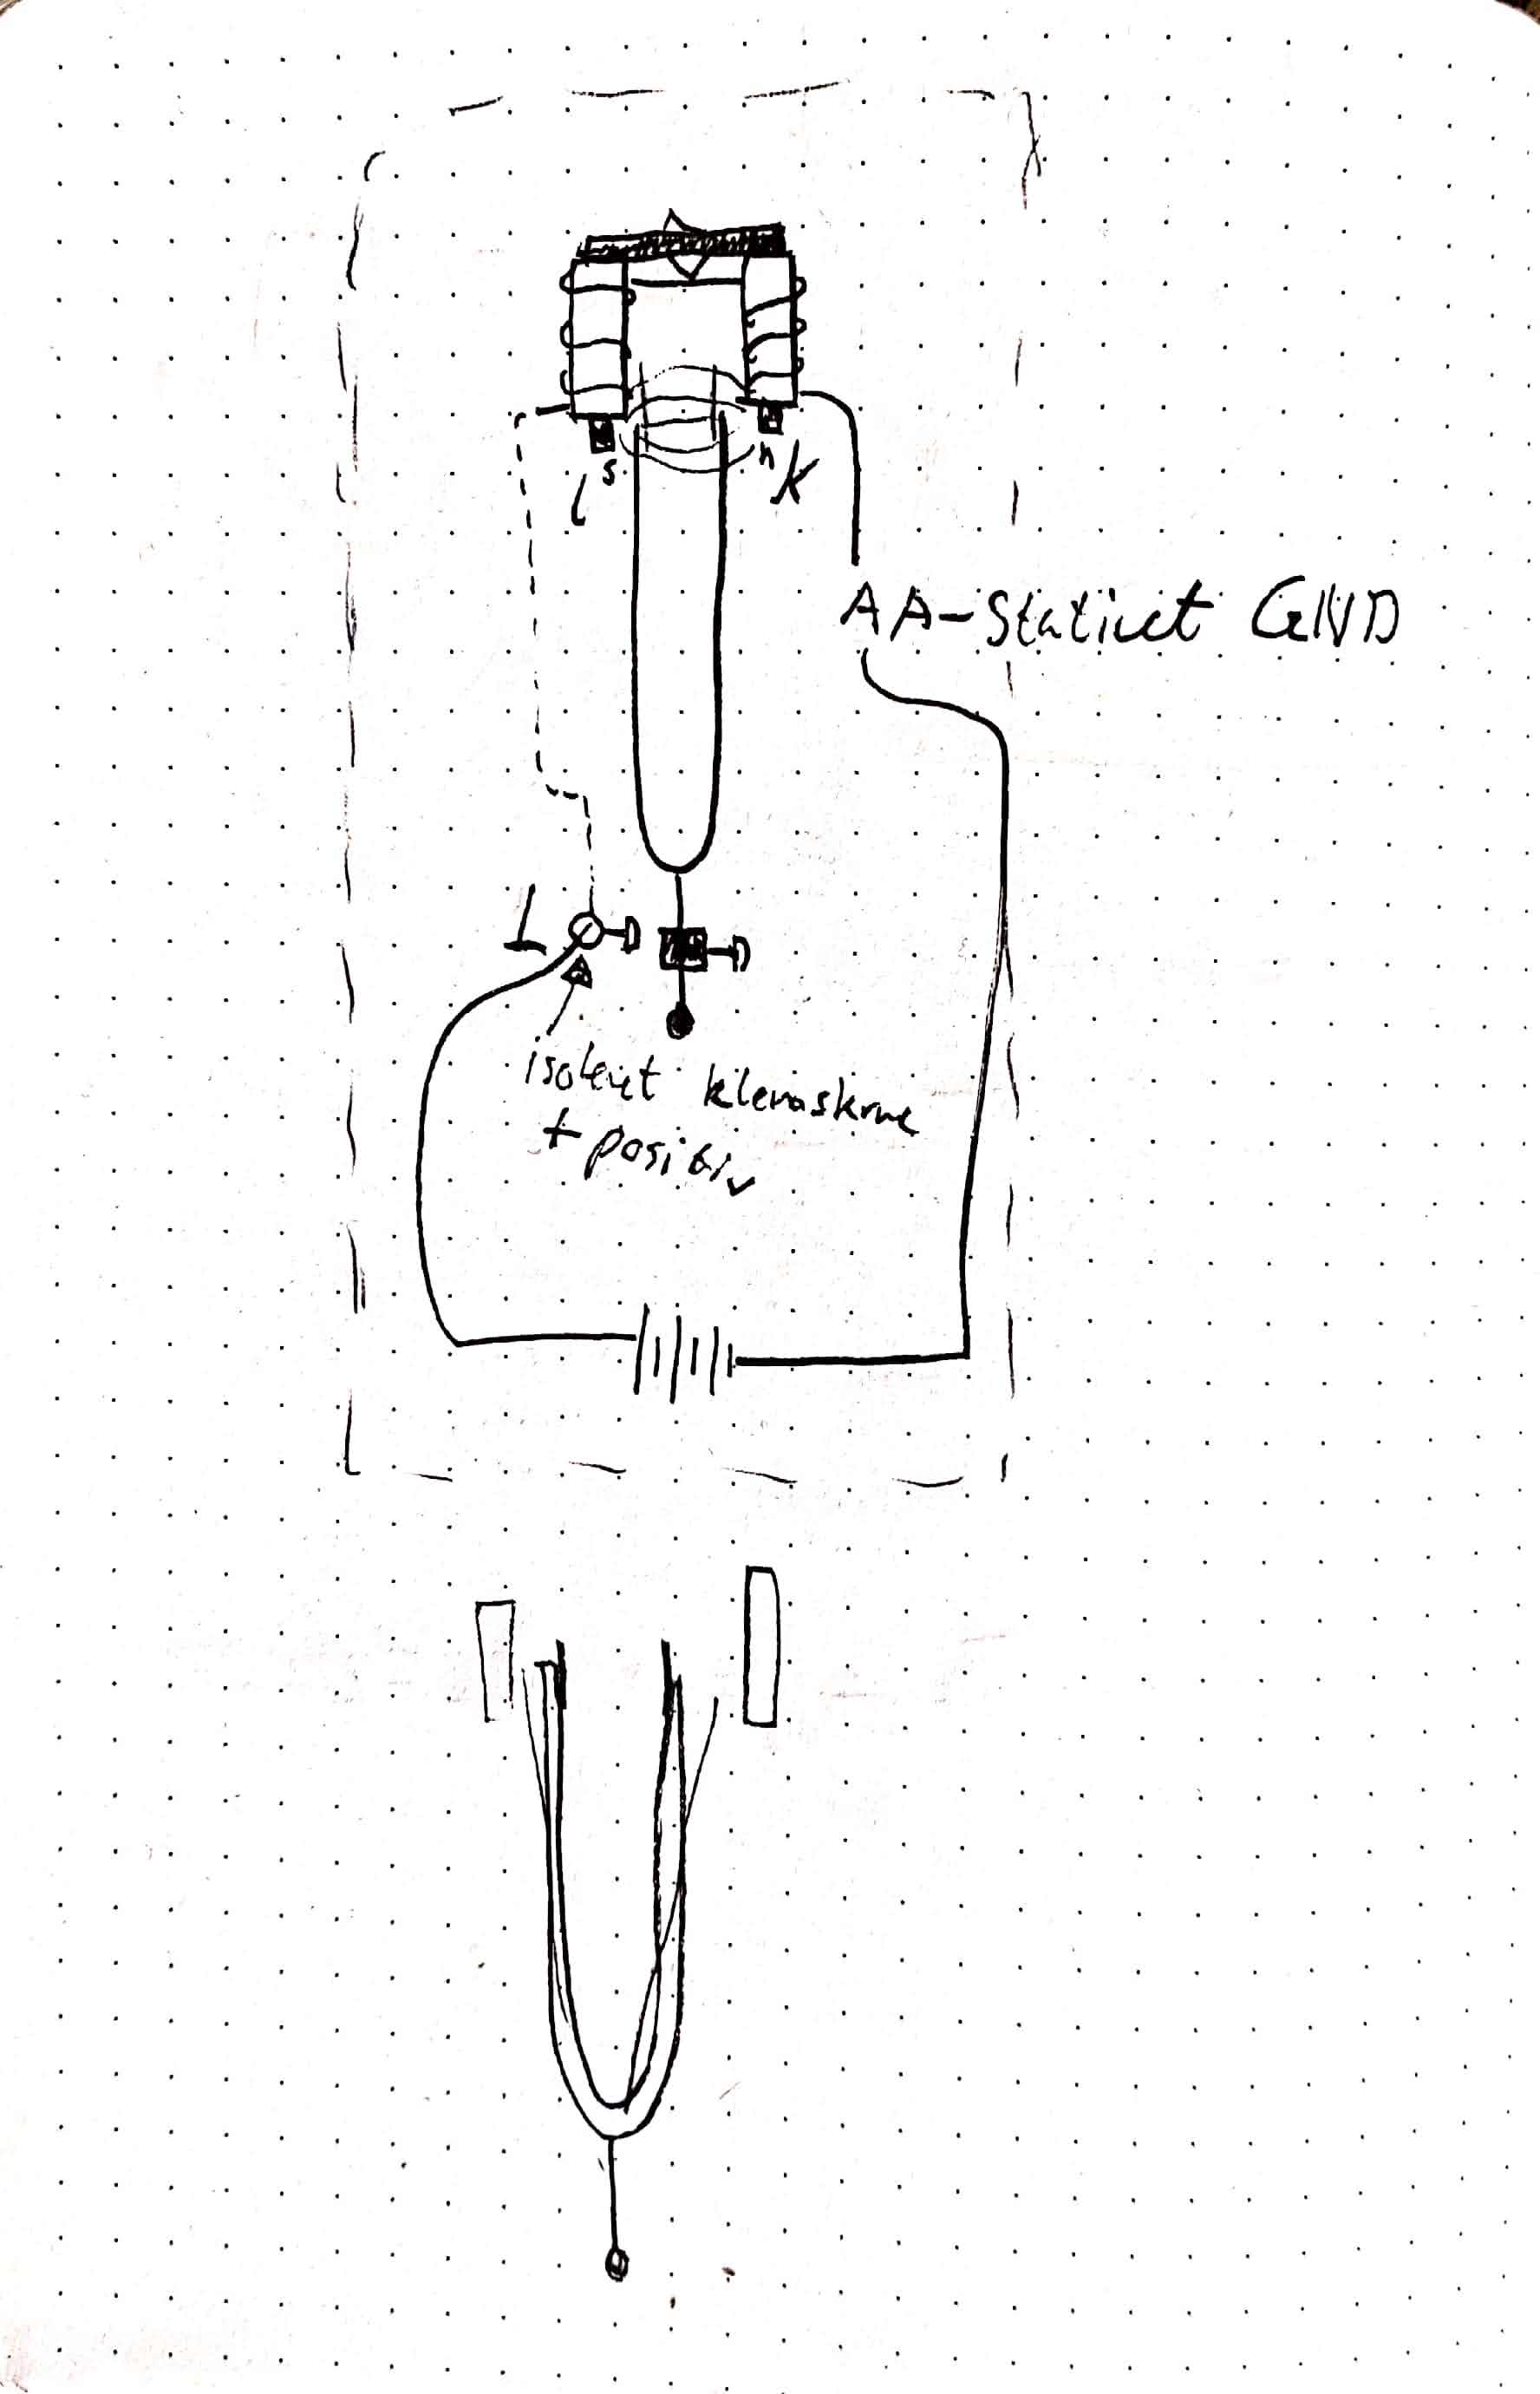 s
n
l
k
AA-Stativet GND
L
isoleret klemskrue
+ positiv